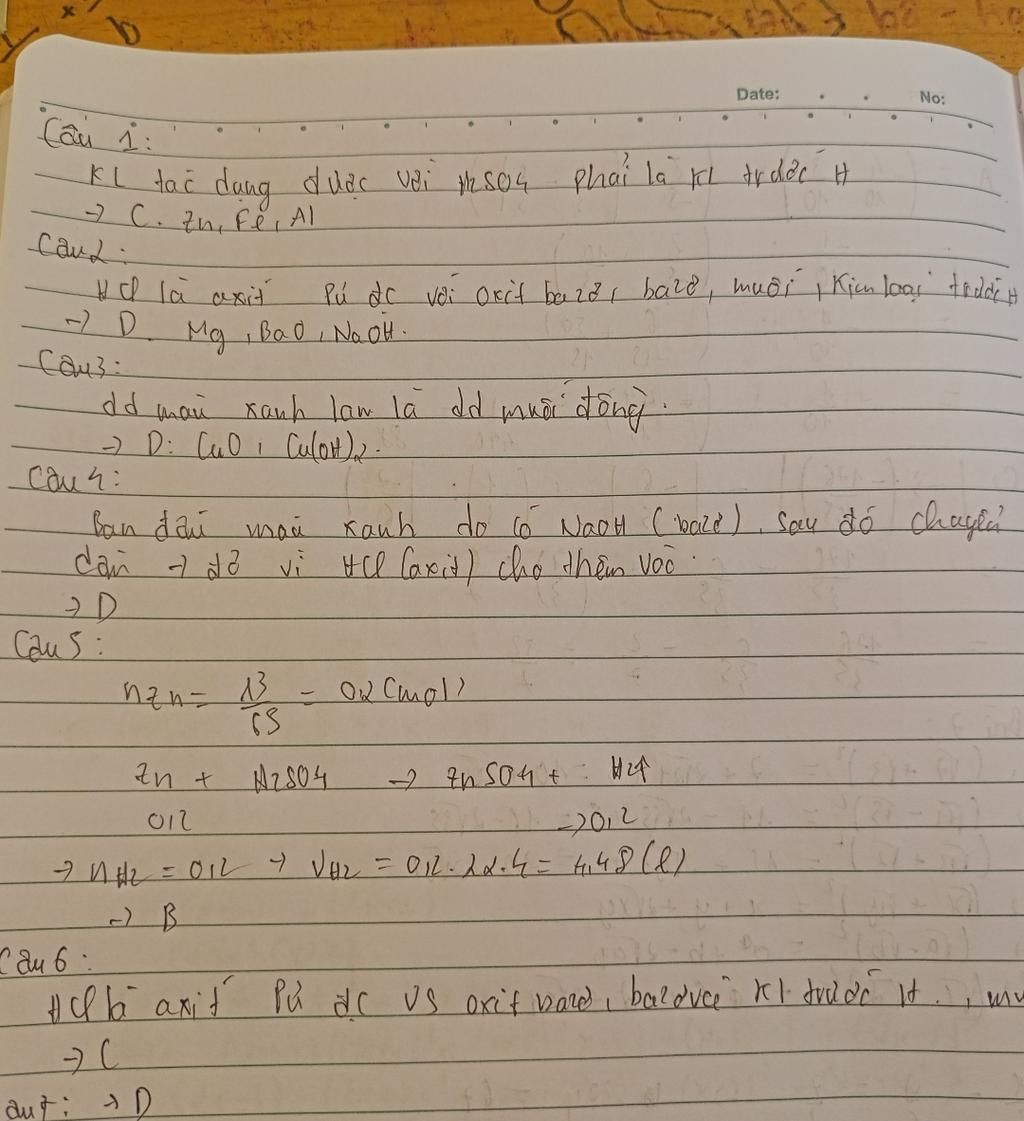 Date: No:
Câu 1:
KL tác dụng được với H2SO4 phải là KL trước H
→ C. Zn, Fe, Al
Câu 2:
HCl là axit Pứ đc với oxit bazơ, bazơ, muối, Kim loại trước H
→ D. Mg, BaO, NaOH.
Câu 3:
dd màu xanh lam là dd muối đồng.
→ D: CuO, Cu(OH)2.
Câu 4:
Ban đầu màu xanh do có NaOH (bazơ), sau đó chuyển
dần → đỏ vì HCl (axit) cho thêm vào.
→ D
Câu 5:
nZn = 13/65 = 0,2 (mol)
Zn + H2SO4 → ZnSO4 + H2↑
0,2 → 0,2
→ nH2 = 0,2 → VH2 = 0,2.22.4 = 4,48 (l)
→ B
Câu 6:
HCl là axit Pứ đc vs oxit bazơ, bazơ KL trước H.,
→ C
→ D